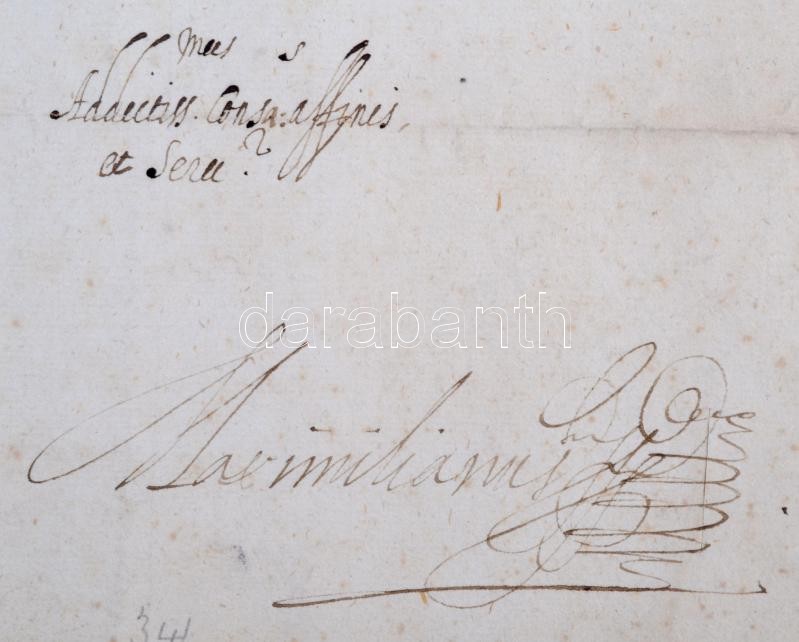 mees s
Addictiss. Consa: affinis,
et Seru.r
darabanth
Maximilianus
34